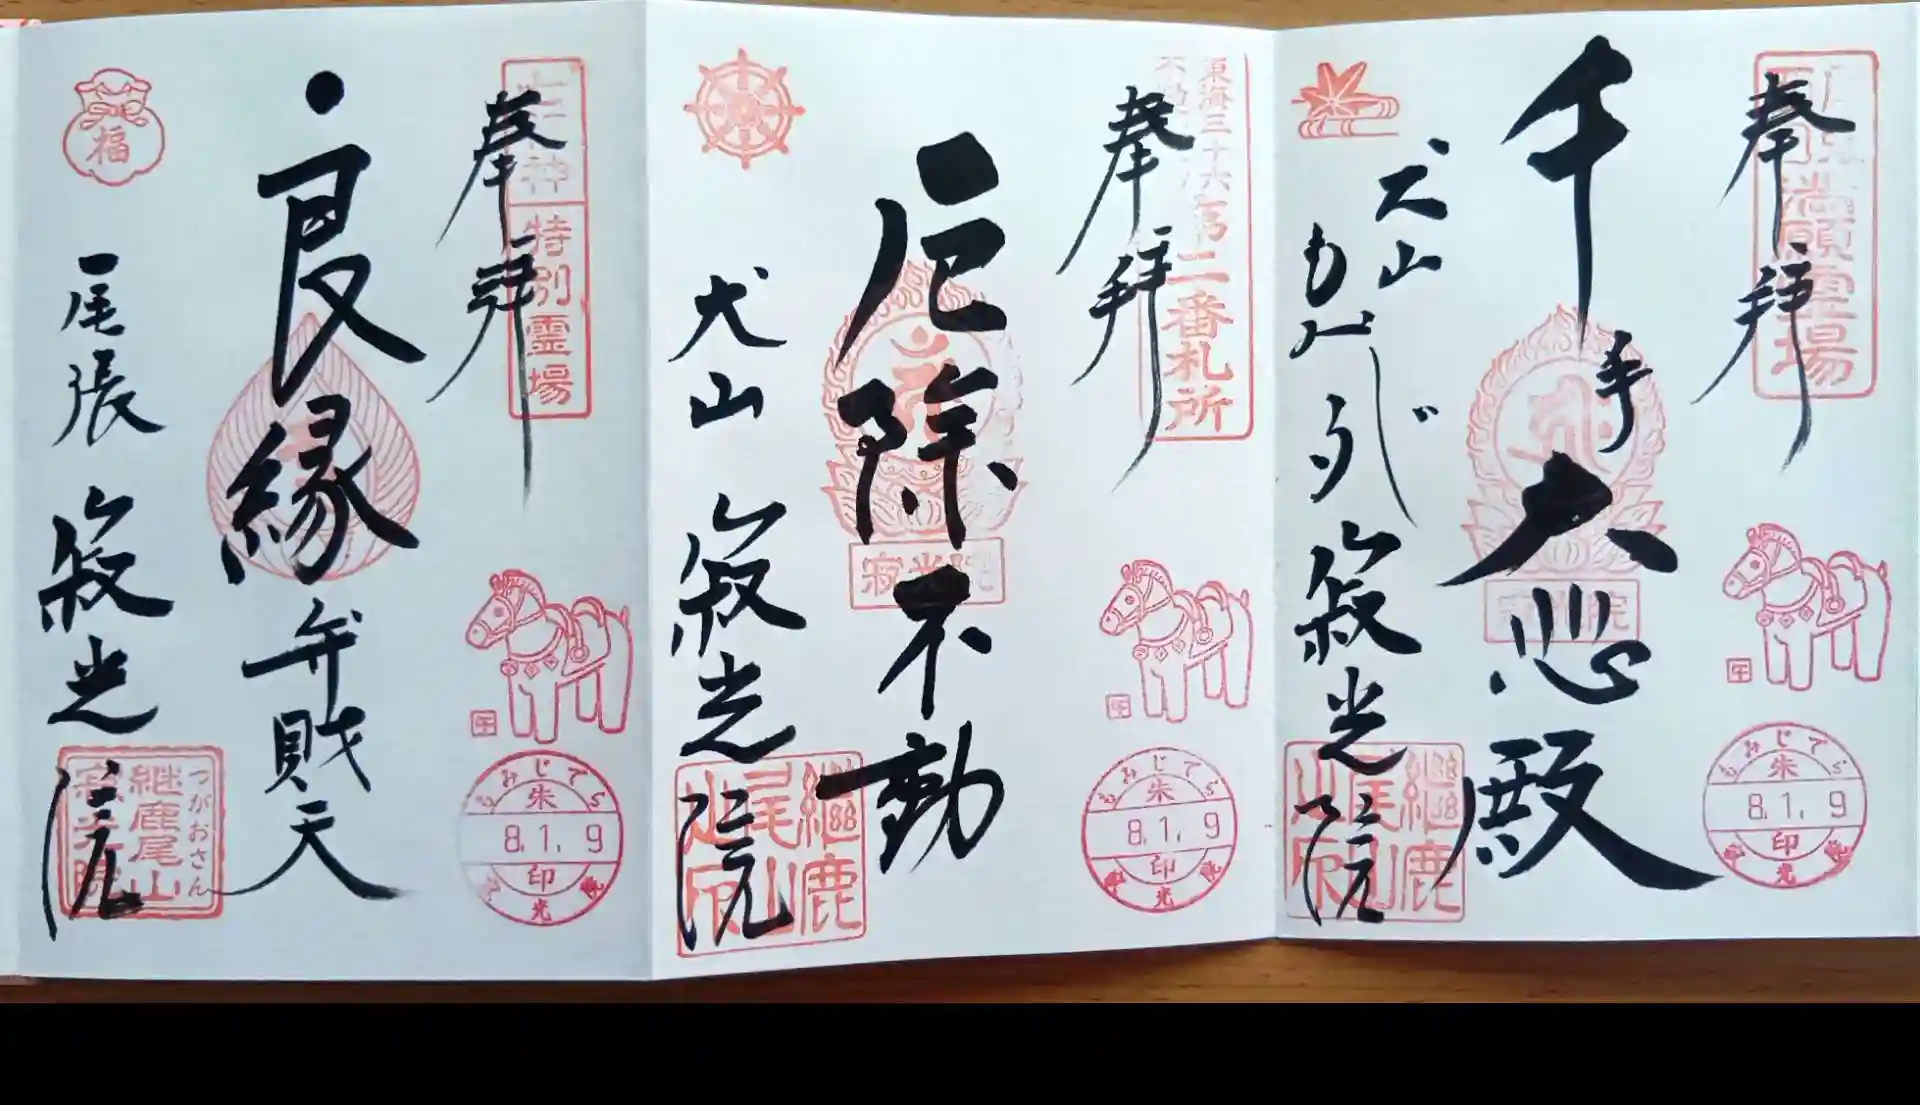 奉拝
満願霊場
千手大悲殿
犬山
もみじでら
寂光院
継鹿尾山
午
もみじでら
朱
8.1.9
印
奉拝
東海三十六
不動
第二番札所
厄除不動
寂光院
犬山
寂光院
継鹿尾山
午
もみじでら
朱
8.1.9
印
光
奉拝
七福神
特別霊場
良縁
弁財天
福
尾張
寂光院
つがおさん
継鹿尾山
寂光院
午
もみじでら
朱
8.1.9
印
光